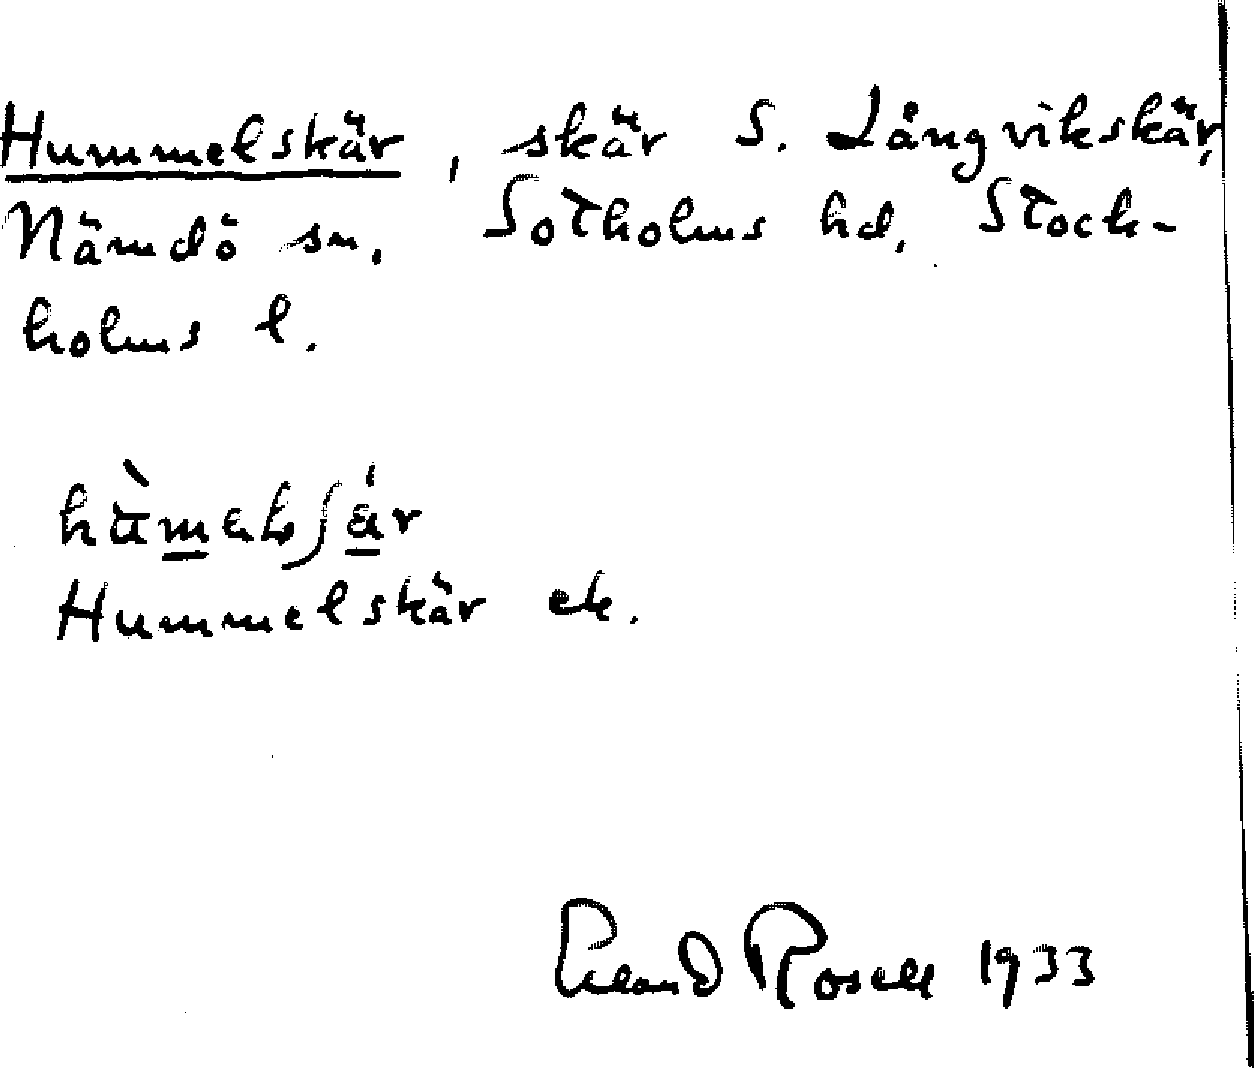 Hummelskär, skär S. Långvikskär,
Nämdö sn. Sotholms hd, Stock-
holms l.
hùmelsʃä́r
Hummelskär ek.
Erland Rosell 1933